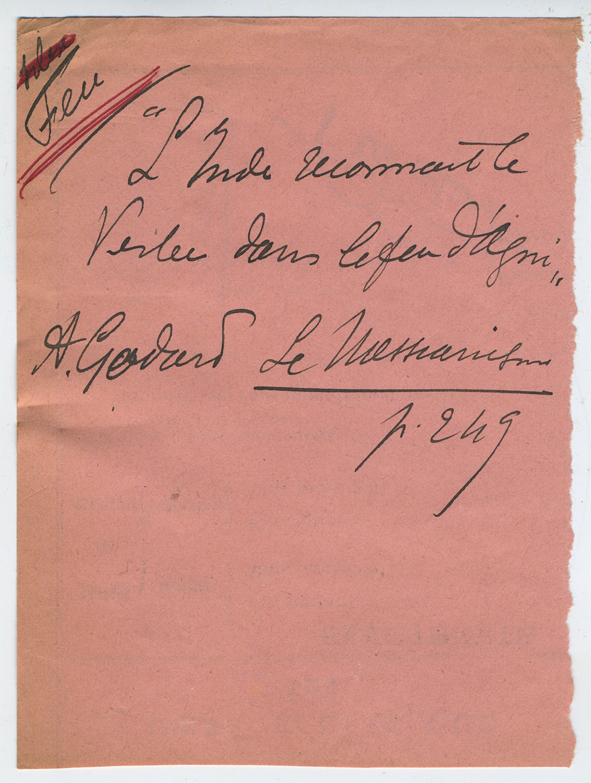 Feu
"L'Inde reconnait le
Verbe dans le feu d'Agni"
A. Godard Le Messianisme
p. 249